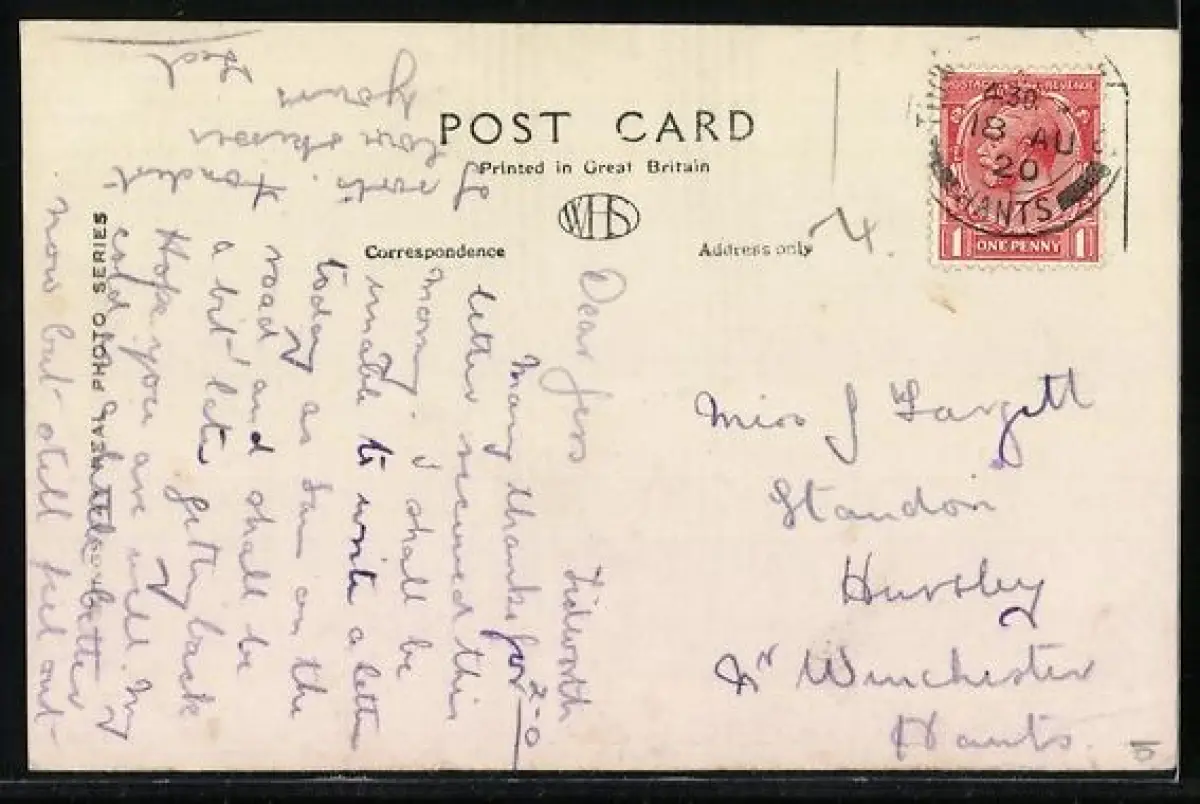 POST CARD
Printed in Great Britain
WHS
Correspondence
Address only
4.30
18 AU
20
HANTS
1 ONE PENNY 1
Miss J Targett
Standon
Hursley
Nr Winchester
Hants.
Tidworth
Dear Jess
Many thanks for
letter received this
morng. I shall be
unable to write a letter
today as I am on the
road and shall be
a bit late getting back
Hope you are well. My
cold is a little better
now but still feel out
of sorts. Fondest
love
Yours
Ted
PHOTO SERIES